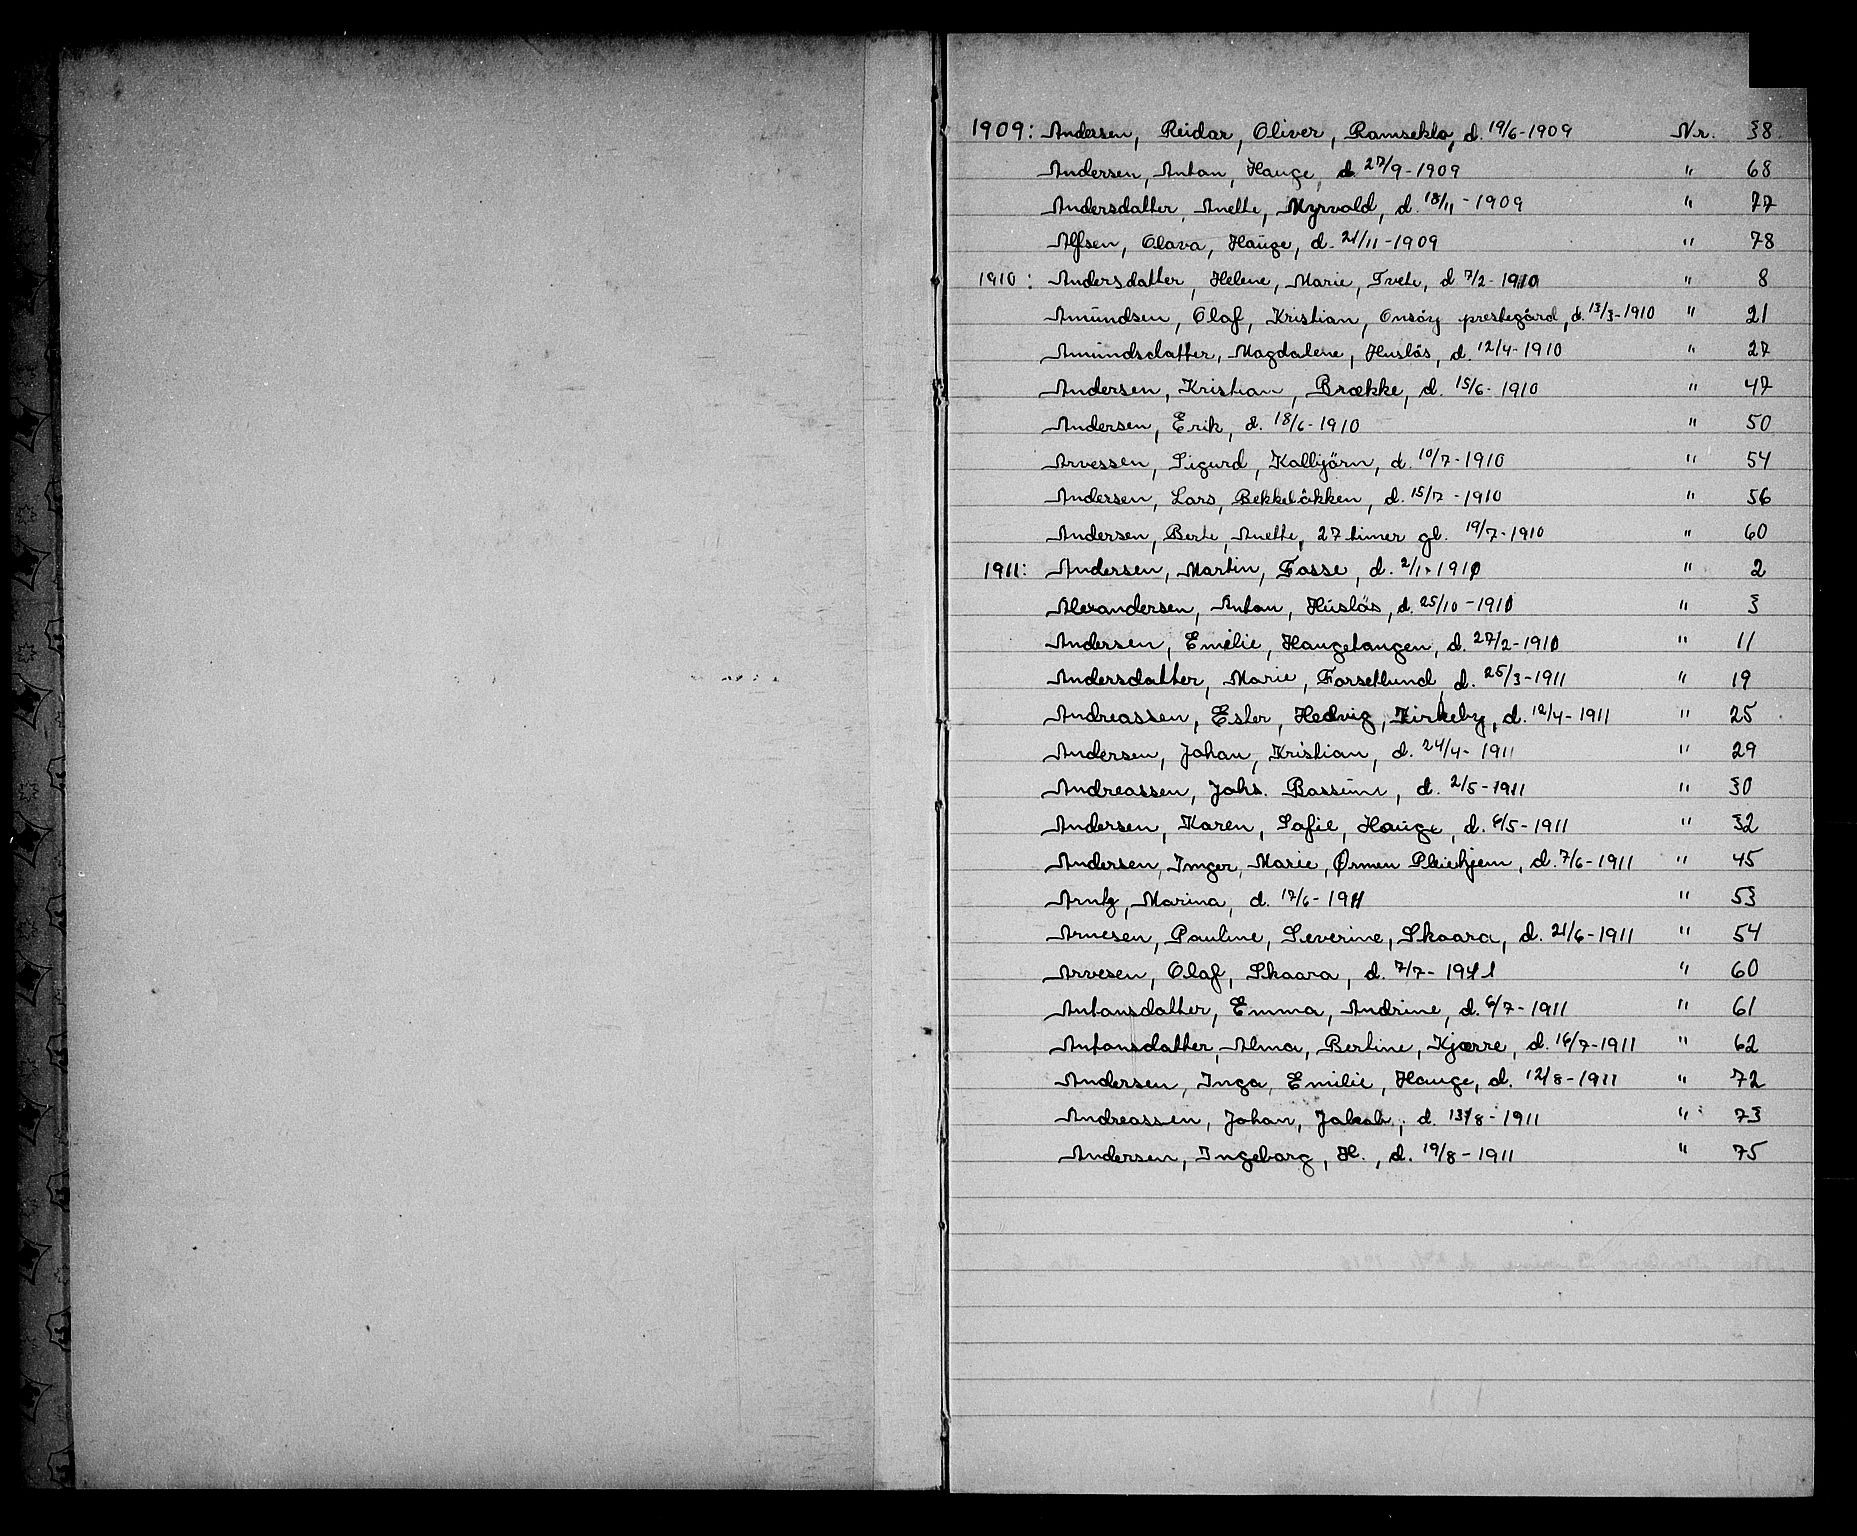 1909: Andersen, Reidar, Oliver, Ramsekla, d. 19/6-1909 Nr. 38
Andersen, Anton, Hauge, d. 27/9-1909 " 68
Andersdatter, Anette, Myrvold, d. 18/11-1909 " 77
Alfsen, Olava, Hauge, d. 21/11-1909 " 78
1910: Andersdatter, Helene, Marie, Tvete, d 7/2-1910 " 8
Amundsen, Olaf, Kristian, Onsöy prestegård, d. 13/3-1910 " 21
Amundsdatter, Magdalene, Huslös, d. 12/4-1910 " 27
Andersen, Kristian, Brække, d. 15/6-1910 " 47
Andersen, Erik, d. 18/6-1910 " 50
Arvessen, Sigurd, Kolbjörn, d. 10/7-1910 " 54
Andersen, Lars, Bekkelökken, d. 15/7-1910 " 56
Andersen, Berte, Anette, 27 timer gl. 19/7-1910 " 60
1911: Andersen, Martin, Fosse, d. 2/1-1910 " 2
Alexandersen, Anton, Huslös, d. 25/10-1910 " 3
Andersen, Emelie, Haugetangen, d. 27/2-1910 " 11
Andersdatter, Marie, Forsetlund, d. 25/3-1911 " 19
Andreassen, Ester, Hedvig, Kirkeby, d. 12/4-1911 " 25
Andersen, Johan, Kristian, d. 24/4-1911 " 29
Andreassen, Johs. , d. 2/5-1911 " 30
Andersen, Karen, Sofie, Hauge, d. 6/5-1911 " 32
Andersen, Inger, Marie, Ørmen , d. 7/6-1911 " 45
Arntz, Marina, d. 17/6-1911 " 53
Arnesen, Pauline, Severine, Skaara, d. 21/6-1911 " 54
Arvesen, Olaf, Skaara, d. 7/7-1911 " 60
Antonsdatter, Emma, Andrine, d. 6/7-1911 " 61
Antonsdatter, Alma, Bertine, Kjærre, d. 16/7-1911 " 62
Andersen, Inga, Emilie, Hauge, d. 12/8-1911 " 72
Andreassen, Johan, Jakob, d. 13/8-1911 " 73
Andersen, Ingeborg, H., d. 19/8-1911 " 75